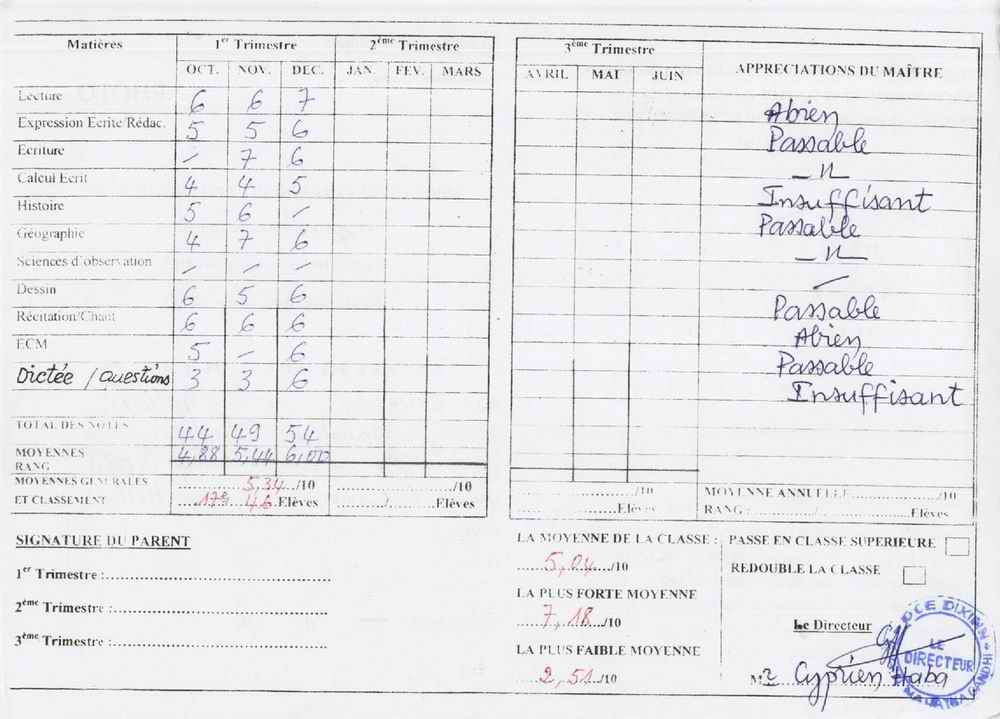 Matières 1er Trimestre 2ème Trimestre 3ème Trimestre APPRECIATIONS DU MAÎTRE
OCT. NOV. DEC. JAN. FEV. MARS AVRIL MAI JUIN
Lecture 6 6 7 Abien
Expression Ecrite/Rédac. 5 5 6 Passable
Ecriture – 7 6 –"–
Calcul Ecrit 4 4 5 Insuffisant
Histoire 5 6 – Passable
Géographie 4 7 6 –"–
Sciences d'observation – – – –
Dessin 6 5 6 Passable
Récitation/Chant 6 6 6 Abien
ECM 5 – 6 Passable
Dictée / questions 3 3 6 Insuffisant
TOTAL DES NOTES 44 49 54
MOYENNES 4,88 5,44 6,00
RANG
MOYENNES GENERALES 5,34 /10 /10 /10 MOYENNE ANNUELLE /10
ET CLASSEMENT 17e 46 Elèves / Elèves Elèves RANG : / Elèves
SIGNATURE DU PARENT
1er Trimestre :
2ème Trimestre :
3ème Trimestre :
LA MOYENNE DE LA CLASSE :
5,04 /10
LA PLUS FORTE MOYENNE
7,18 /10
LA PLUS FAIBLE MOYENNE
2,51 /10
PASSE EN CLASSE SUPERIEURE
REDOUBLE LA CLASSE
Le Directeur
Mr Cyprien Haba
LE DIRECTEUR
DIXINN
GANDHI